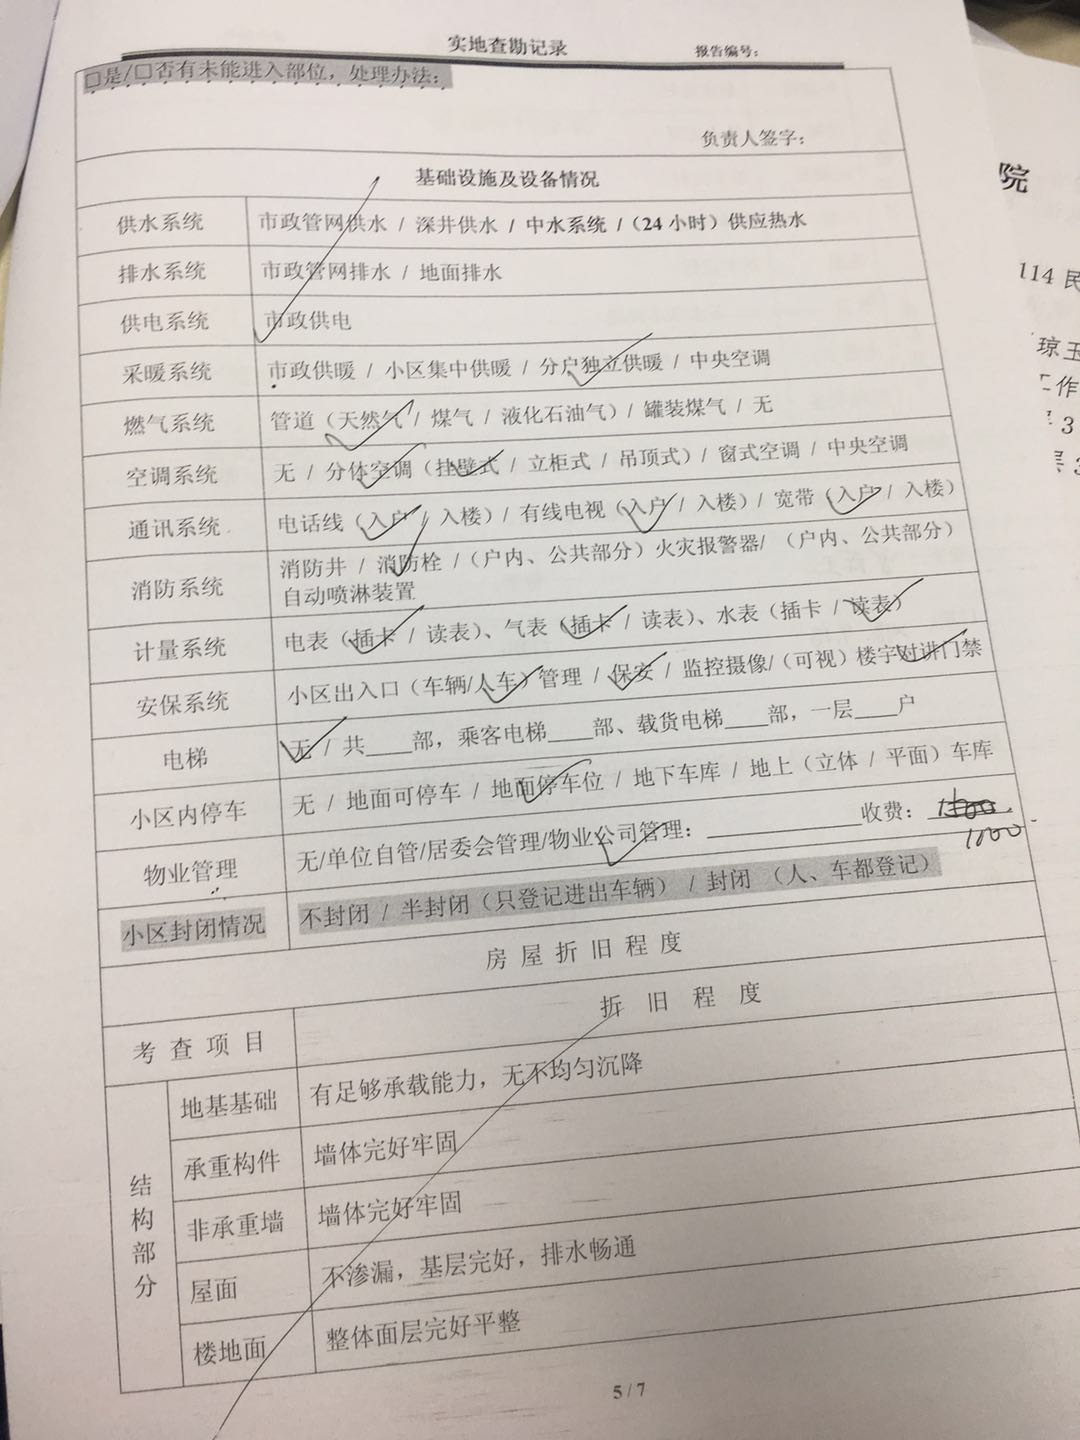 实地查勘记录 报告编号：
□是/□否有未能进入部位，处理办法：
负责人签字：
基础设施及设备情况
供水系统 市政管网供水 / 深井供水 / 中水系统 /（24 小时）供应热水
排水系统 市政管网排水 / 地面排水
供电系统 市政供电
采暖系统 市政供暖 / 小区集中供暖 / 分户独立供暖 / 中央空调
燃气系统 管道（天然气 / 煤气 / 液化石油气）/ 罐装煤气 / 无
空调系统 无 / 分体空调（挂壁式 / 立柜式 / 吊顶式）/ 窗式空调 / 中央空调
通讯系统 电话线（入户 / 入楼）/ 有线电视（入户 / 入楼）/ 宽带（入户 / 入楼）
消防系统 消防井 / 消防栓 /（户内、公共部分）火灾报警器/ （户内、公共部分）
自动喷淋装置
计量系统 电表（插卡 / 读表）、气表（插卡 / 读表）、水表（插卡 / 读表）
安保系统 小区出入口（车辆/人车）管理 / 保安 / 监控摄像/（可视）楼宇对讲门禁
电梯 无 / 共____部，乘客电梯____部、载货电梯____部，一层____户
小区内停车 无 / 地面可停车 / 地面停车位 / 地下车库 / 地上（立体 / 平面）车库
物业管理 无/单位自管/居委会管理/物业公司管理：______________收费：
1100
小区封闭情况 不封闭 / 半封闭（只登记进出车辆） / 封闭 （人、车都登记）
房 屋 折 旧 程 度
考 查 项 目 折 旧 程 度
结构部分
地基基础 有足够承载能力，无不均匀沉降
承重构件 墙体完好牢固
非承重墙 墙体完好牢固
屋面 不渗漏，基层完好，排水畅通
楼地面 整体面层完好平整
5 / 7
院
114 民
琼玉
工作
3
层 3